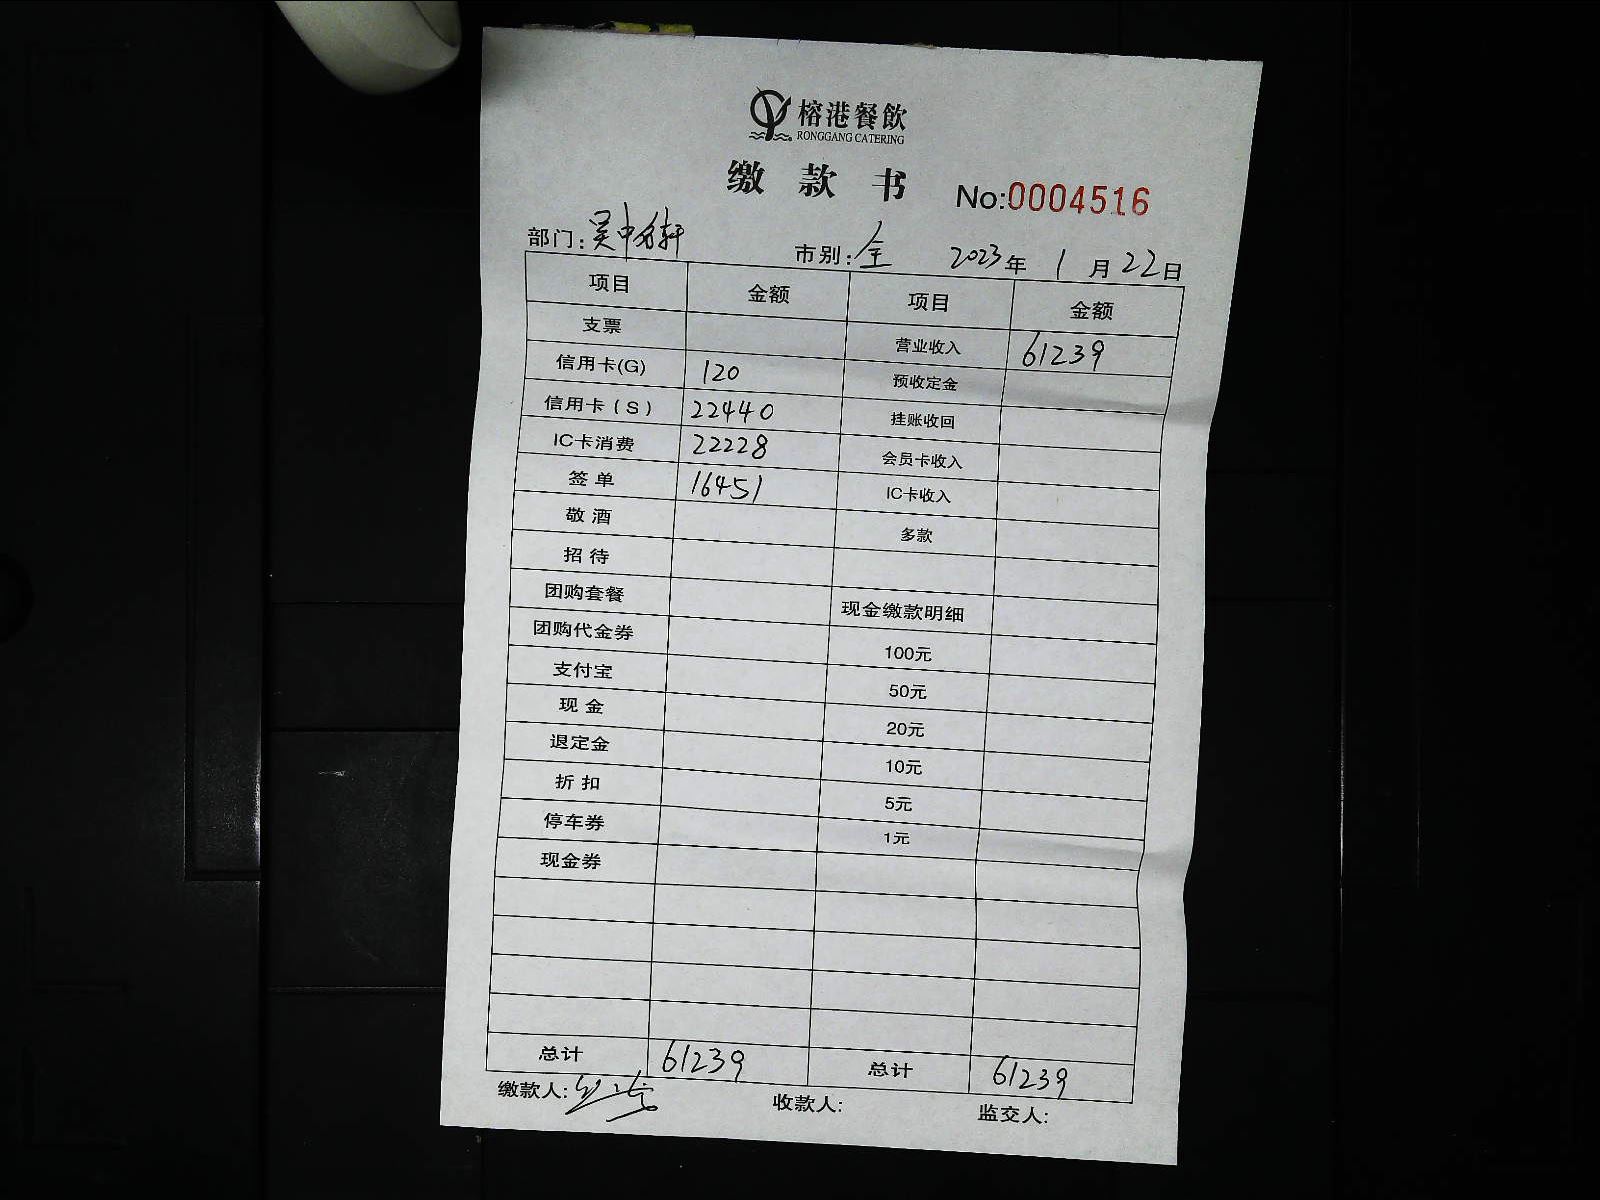 榕港餐飲
RONGGANG CATERING
缴款书 No:0004516
部门:吴中名轩 市别:全 2023年1月22日
项目 金额 项目 金额
支票 营业收入 61239
信用卡(G) 120 预收定金
信用卡(S) 22440 挂账收回
IC卡消费 22228 会员卡收入
签单 16451 IC卡收入
敬酒 多款
招待
团购套餐 现金缴款明细
团购代金券 100元
支付宝 50元
现金 20元
退定金 10元
折扣 5元
停车券 1元
现金券
总计 61239 总计 61239
缴款人: 收款人: 监交人: